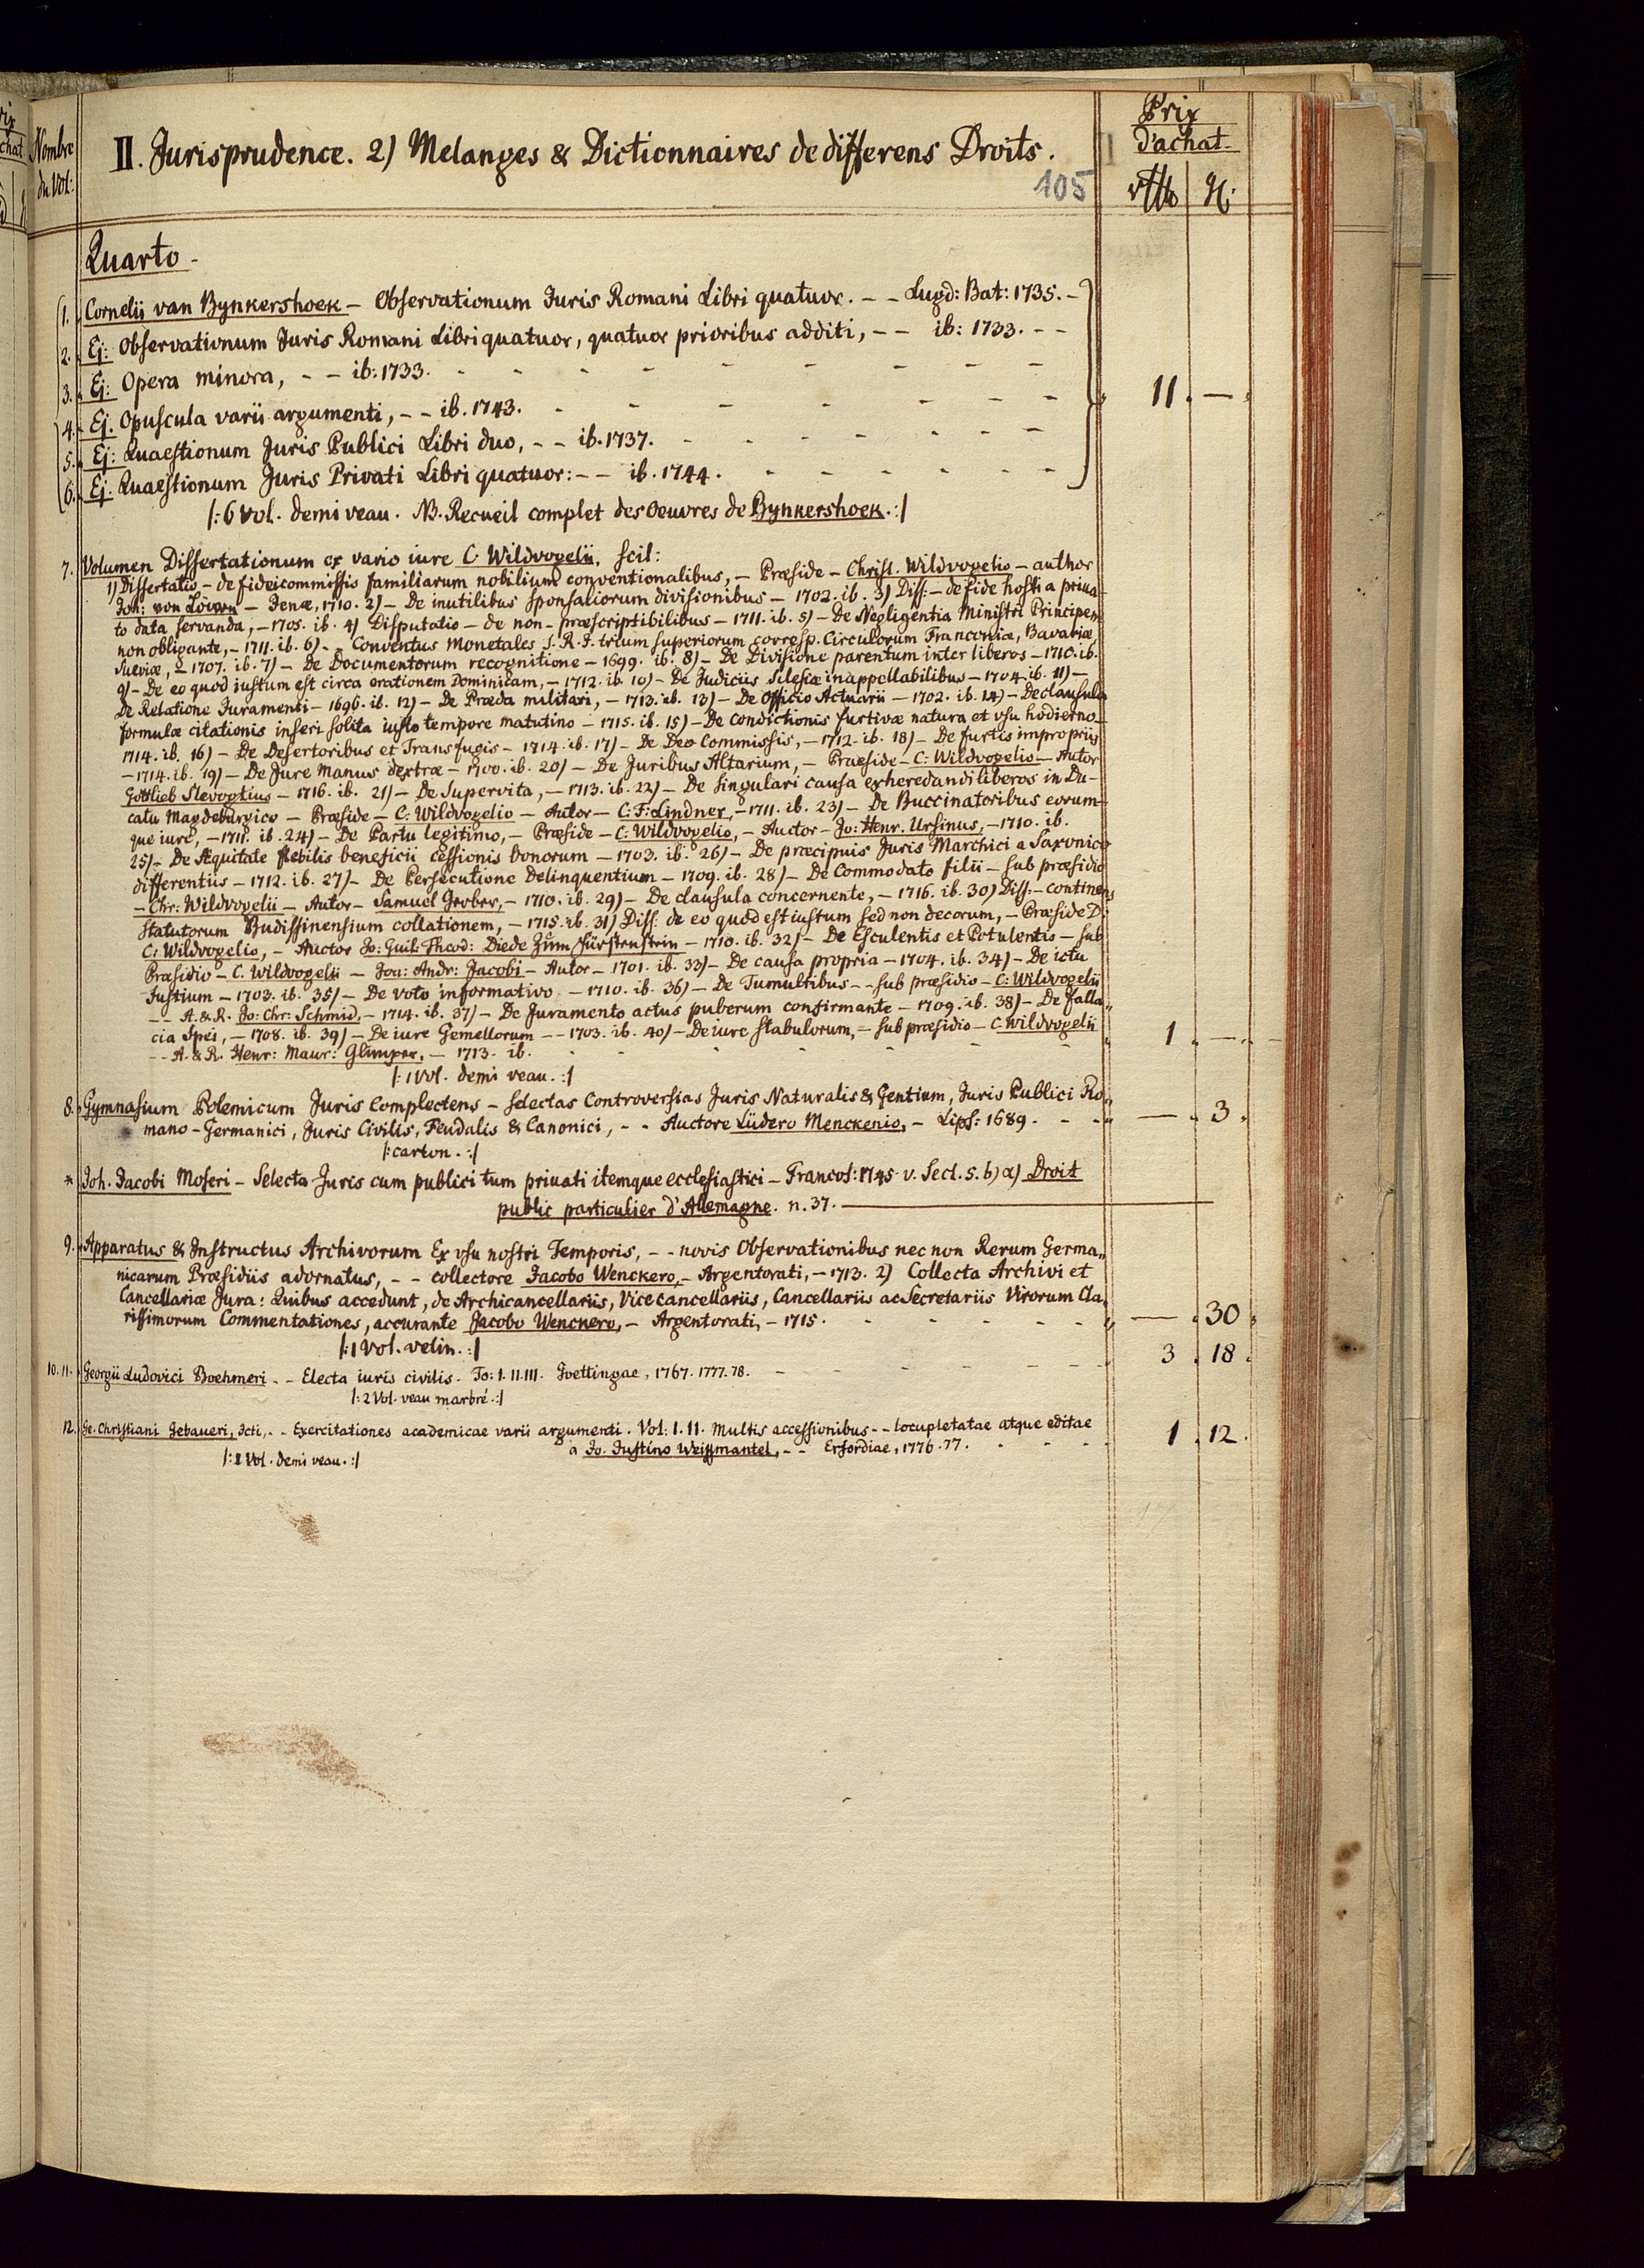 Nombre
du Vol:
II. Jurisprudence. 2) Melanges & Dictionnaires de differens Droits.
105
Prix
d'achat.
Quarto.
1. Cornelii van Bynkershoek – Observationum Juris Romani Libri quatuor. – – Lugd: Bat: 1735. –
2. Ej: Observationum Juris Romani Libri quatuor, quatuor prioribus additi, – – ib: 1733. – –
3. Ej: Opera minora, – – ib: 1733.
11. —
4. Ej. Opuscula varii argumenti, – – ib. 1743.
5. Ej: Quaestionum Juris Publici Libri duo, – – ib. 1737.
6. Ej. Quaestionum Juris Privati Libri quatuor: – – ib. 1744.
/: 6 Vol. demi veau. NB. Recueil complet des Oeuvres de Bynkershoek. :/
7. Volumen Dissertationum ex vario iure C Wildvogelii, scil:
1) Dissertatio – de fideicommissis familiarum nobilium conventionalibus, – Præside – Christ. Wildvogelio – author
Joh: von Löwen – Jenæ, 1710. 2) – De inutilibus sponsaliorum divisionibus – 1702. ib. 3) Diss: – de fide hosti a priua-
to data servanda, – 1705. ib. 4) Disputatio – de non-præscriptibilibus – 1711. ib. 5) – De Negligentia Ministri Principem
non obligante, – 1711. ib. 6) – Conventus Monetales S. R. I. trium superiorum corresp. Circulorum Franconiæ, Bavariæ,
Sueviæ, – 1707. ib. 7) – De Documentorum recognitione – 1699. ib. 8) – De Divisione parentum inter liberos – 1710. ib.
9) – De eo quod iustum est circa orationem Dominicam, – 1712. ib. 10) – De Judiciis Silesiæ inappellabilibus – 1704. ib. 11) –
De Relatione Juramenti – 1696. ib. 12) – De Præda militari, – 1713. ib. 13) – De Officio Actuarii – 1702. ib. 14) – De clausula
formulæ citationis inseri solita iusto tempore matutino – 1715. ib. 15) – De Condictionis furtivæ natura et usu hodierno –
1714. ib. 16) – De Desertoribus et Transfugis – 1714. ib. 17) – De Deo Commissis, – 1712. ib. 18) – De furtis impropriis
– 1714. ib. 19) – De Jure Manus dextræ – 1700. ib. 20) – De Juribus Altarium, – Praeside – C: Wildvogelio – Autor
Gottlieb Slevogtius – 1716. ib. 21) – De Supervita, – 1713. ib. 22) – De singulari causa exheredandi liberos in Du-
catu Magdeburgico – Præside – C: Wildvogelio – Autor – C: F: Lindner, – 1711. ib. 23) – De Buccinatoribus eorum-
que iure, – 1711. ib. 24) – De Partu legitimo, – Præside – C: Wildvogelio, – Auctor – Jo: Henr. Ursinus, – 1710. ib.
25) – De Æquitate flebilis beneficii cessionis bonorum – 1703. ib. 26) – De præcipuis Juris Marchici a Saxonico
differentiis – 1712. ib. 27) – De Persecutione Delinquentium – 1709. ib. 28) – De Commodato filii – sub præsidio
– Chr: Wildvogelii – Autor – Samuel Grober, – 1710. ib. 29) – De clausula concernente, – 1716. ib. 30) Diss: – continens
Statutorum Budissinensium collationem, – 1715. ib. 31) Diss. de eo quod est iustum sed non decorum, – Præside D.
C: Wildvogelio, – Auctor Jo: Guil: Theod: Diede Zum Fürstenstein – 1710. ib. 32) – De Esculentis et Potulentis – sub
Præsidio – C. Wildvogelii – Joa: Andr: Jacobi – Autor – 1701. ib. 33) – De causa propria – 1704. ib. 34) – De ictu
fustium – 1703. ib. 35) – De voto informativo – 1710. ib. 36) – De Tumultibus – – sub præsidio – C: Wildvogelii
– – A. & R. Jo: Chr: Schmid, – 1714. ib. 37) – De Juramento actus puberum confirmante – 1709. ib. 38) – De falla-
cia Spei, – 1708. ib. 39) – De iure Gemellorum – – 1703. ib. 40) – De iure stabulorum, – sub præsidio – C. Wildvogelii
– – A. & R. Henr: Maur: Glimper, – 1713. ib. 1. —
/: 1 Vol. demi veau. :/
8. Gymnasium Polemicum Juris Complectens – selectas Controversias Juris Naturalis & Gentium, Juris Publici Ro-
mano-Germanici, Juris Civilis, Feudalis & Canonici, – – Auctore Lüdero Menckenio, – Lips: 1689. – – — . 3.
/: carton. :/
* Joh. Jacobi Moseri – Selecta Juris cum publici tum privati itemque ecclesiastici – Francof: 1745 v. Sect. 5. b) α) Droit
public particulier d'Allemagne. n. 37.
9. Apparatus & Instructus Archivorum Ex usu nostri Temporis, – – novis Observationibus nec non Rerum Germa-
nicarum Præsidiis adornatus, – – collectore Jacobo Wenckero, – Argentorati, – 1713. 2) Collecta Archivi et
Cancellariæ Jura: Quibus accedunt, de Archicancellariis, Vicecancellariis, Cancellariis ac Secretariis Virorum Cla-
rissimorum Commentationes, accurante Jacobo Wenckero, – Argentorati, – 1715. — . 30.
/: 1 Vol. velin. :/
10. 11. Georgii Ludovici Boehmeri – – Electa iuris civilis. To: I. II. III. Goettingae, 1767. 1777. 78. 3. 18.
/: 2 Vol. veau marbré. :/
12. Ge. Christiani Gebaueri, Icti, – – Exercitationes academicae varii argumenti. Vol: I. II. Multis accessionibus – – locupletatae atque editae
a Jo. Justino Weissmantel, – – Erfordiae, 1776. 77. 1. 12.
/: 2 Vol. demi veau. :/